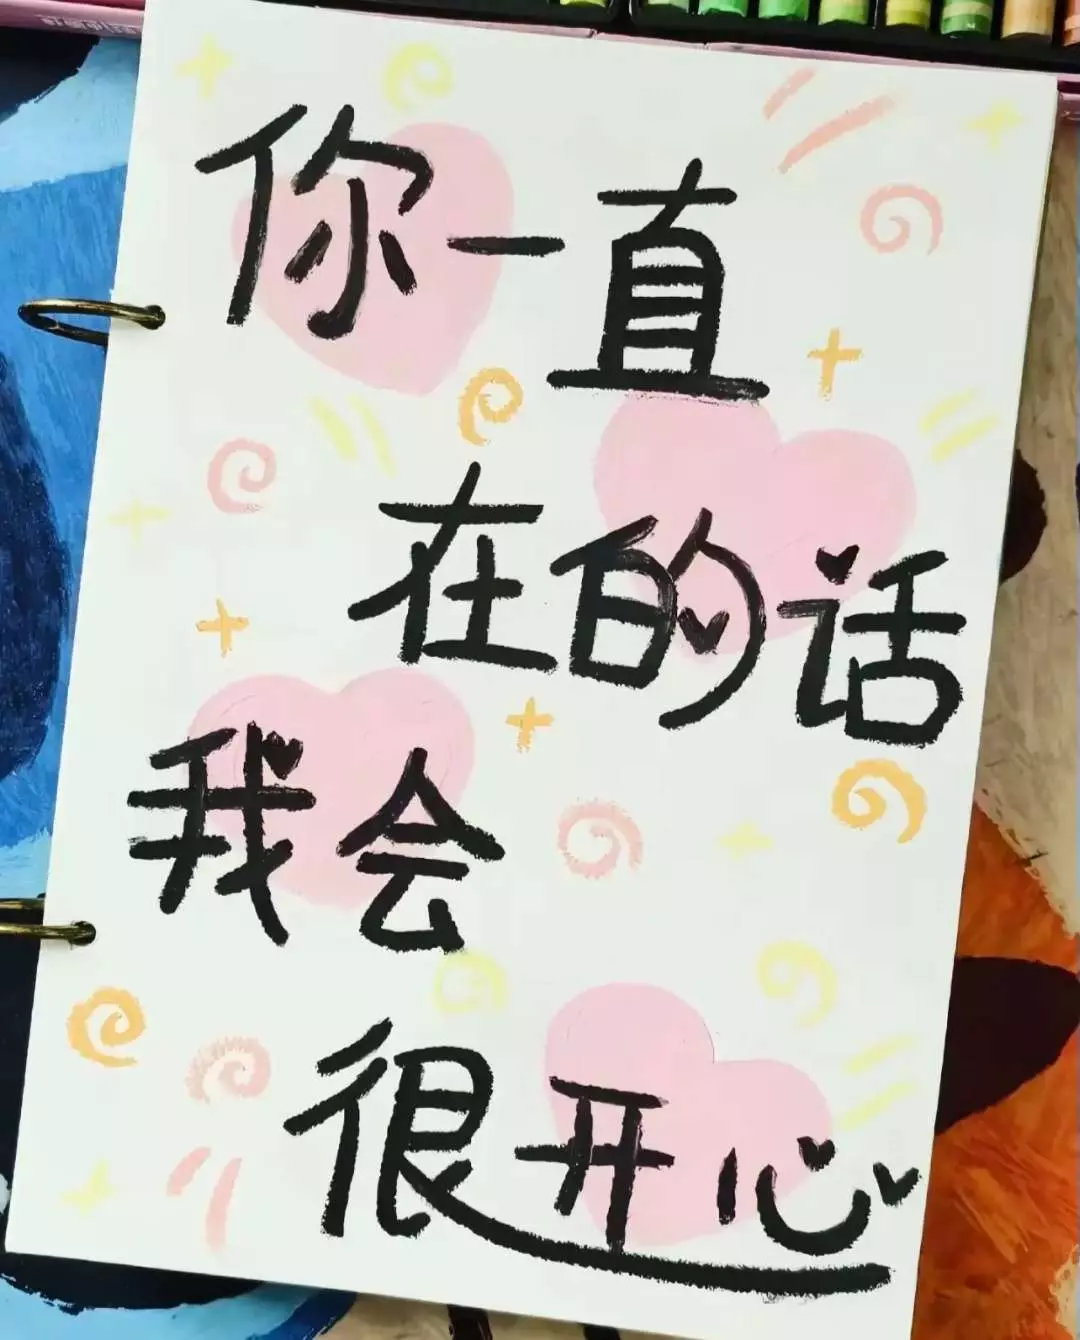 你一直
在的话
我会
很开心